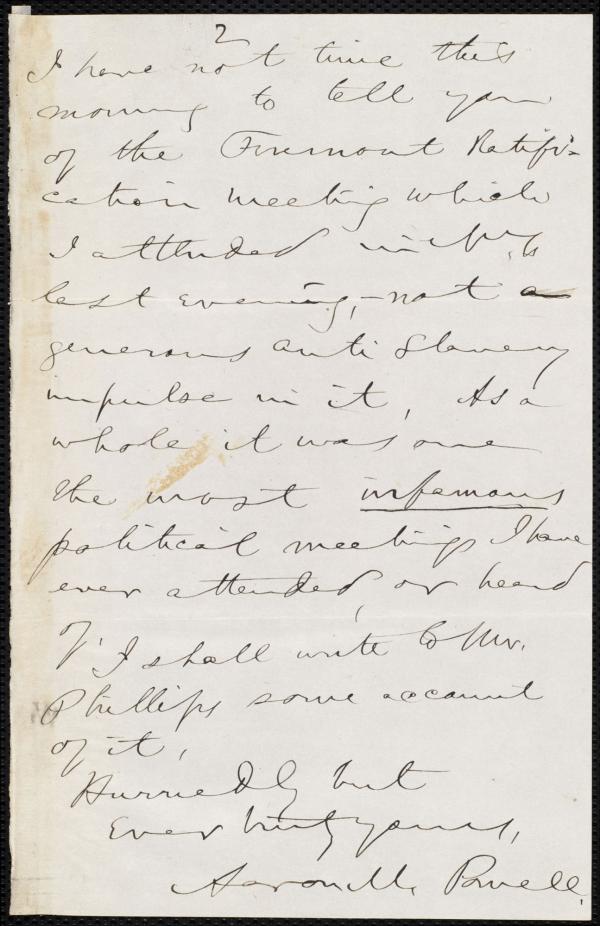 2
I have not time this
morning to tell you
of the Fremont Ratifi-
cation meeting which
I attended in N.Y.
last evening, - not a
generous anti Slavery
impulse in it, As a
whole it was one
the most infamous
political meetings I have
ever attended, or heard
of. I shall write to Mr.
Phillips some account
of it,
Hurriedly but
Ever truly yours,
Aaron M. Powell.